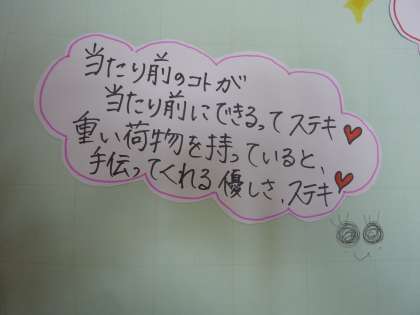 当たり前のコトが
当たり前にできるってステキ
重い荷物を持っていると、
手伝ってくれる優しさ、ステキ